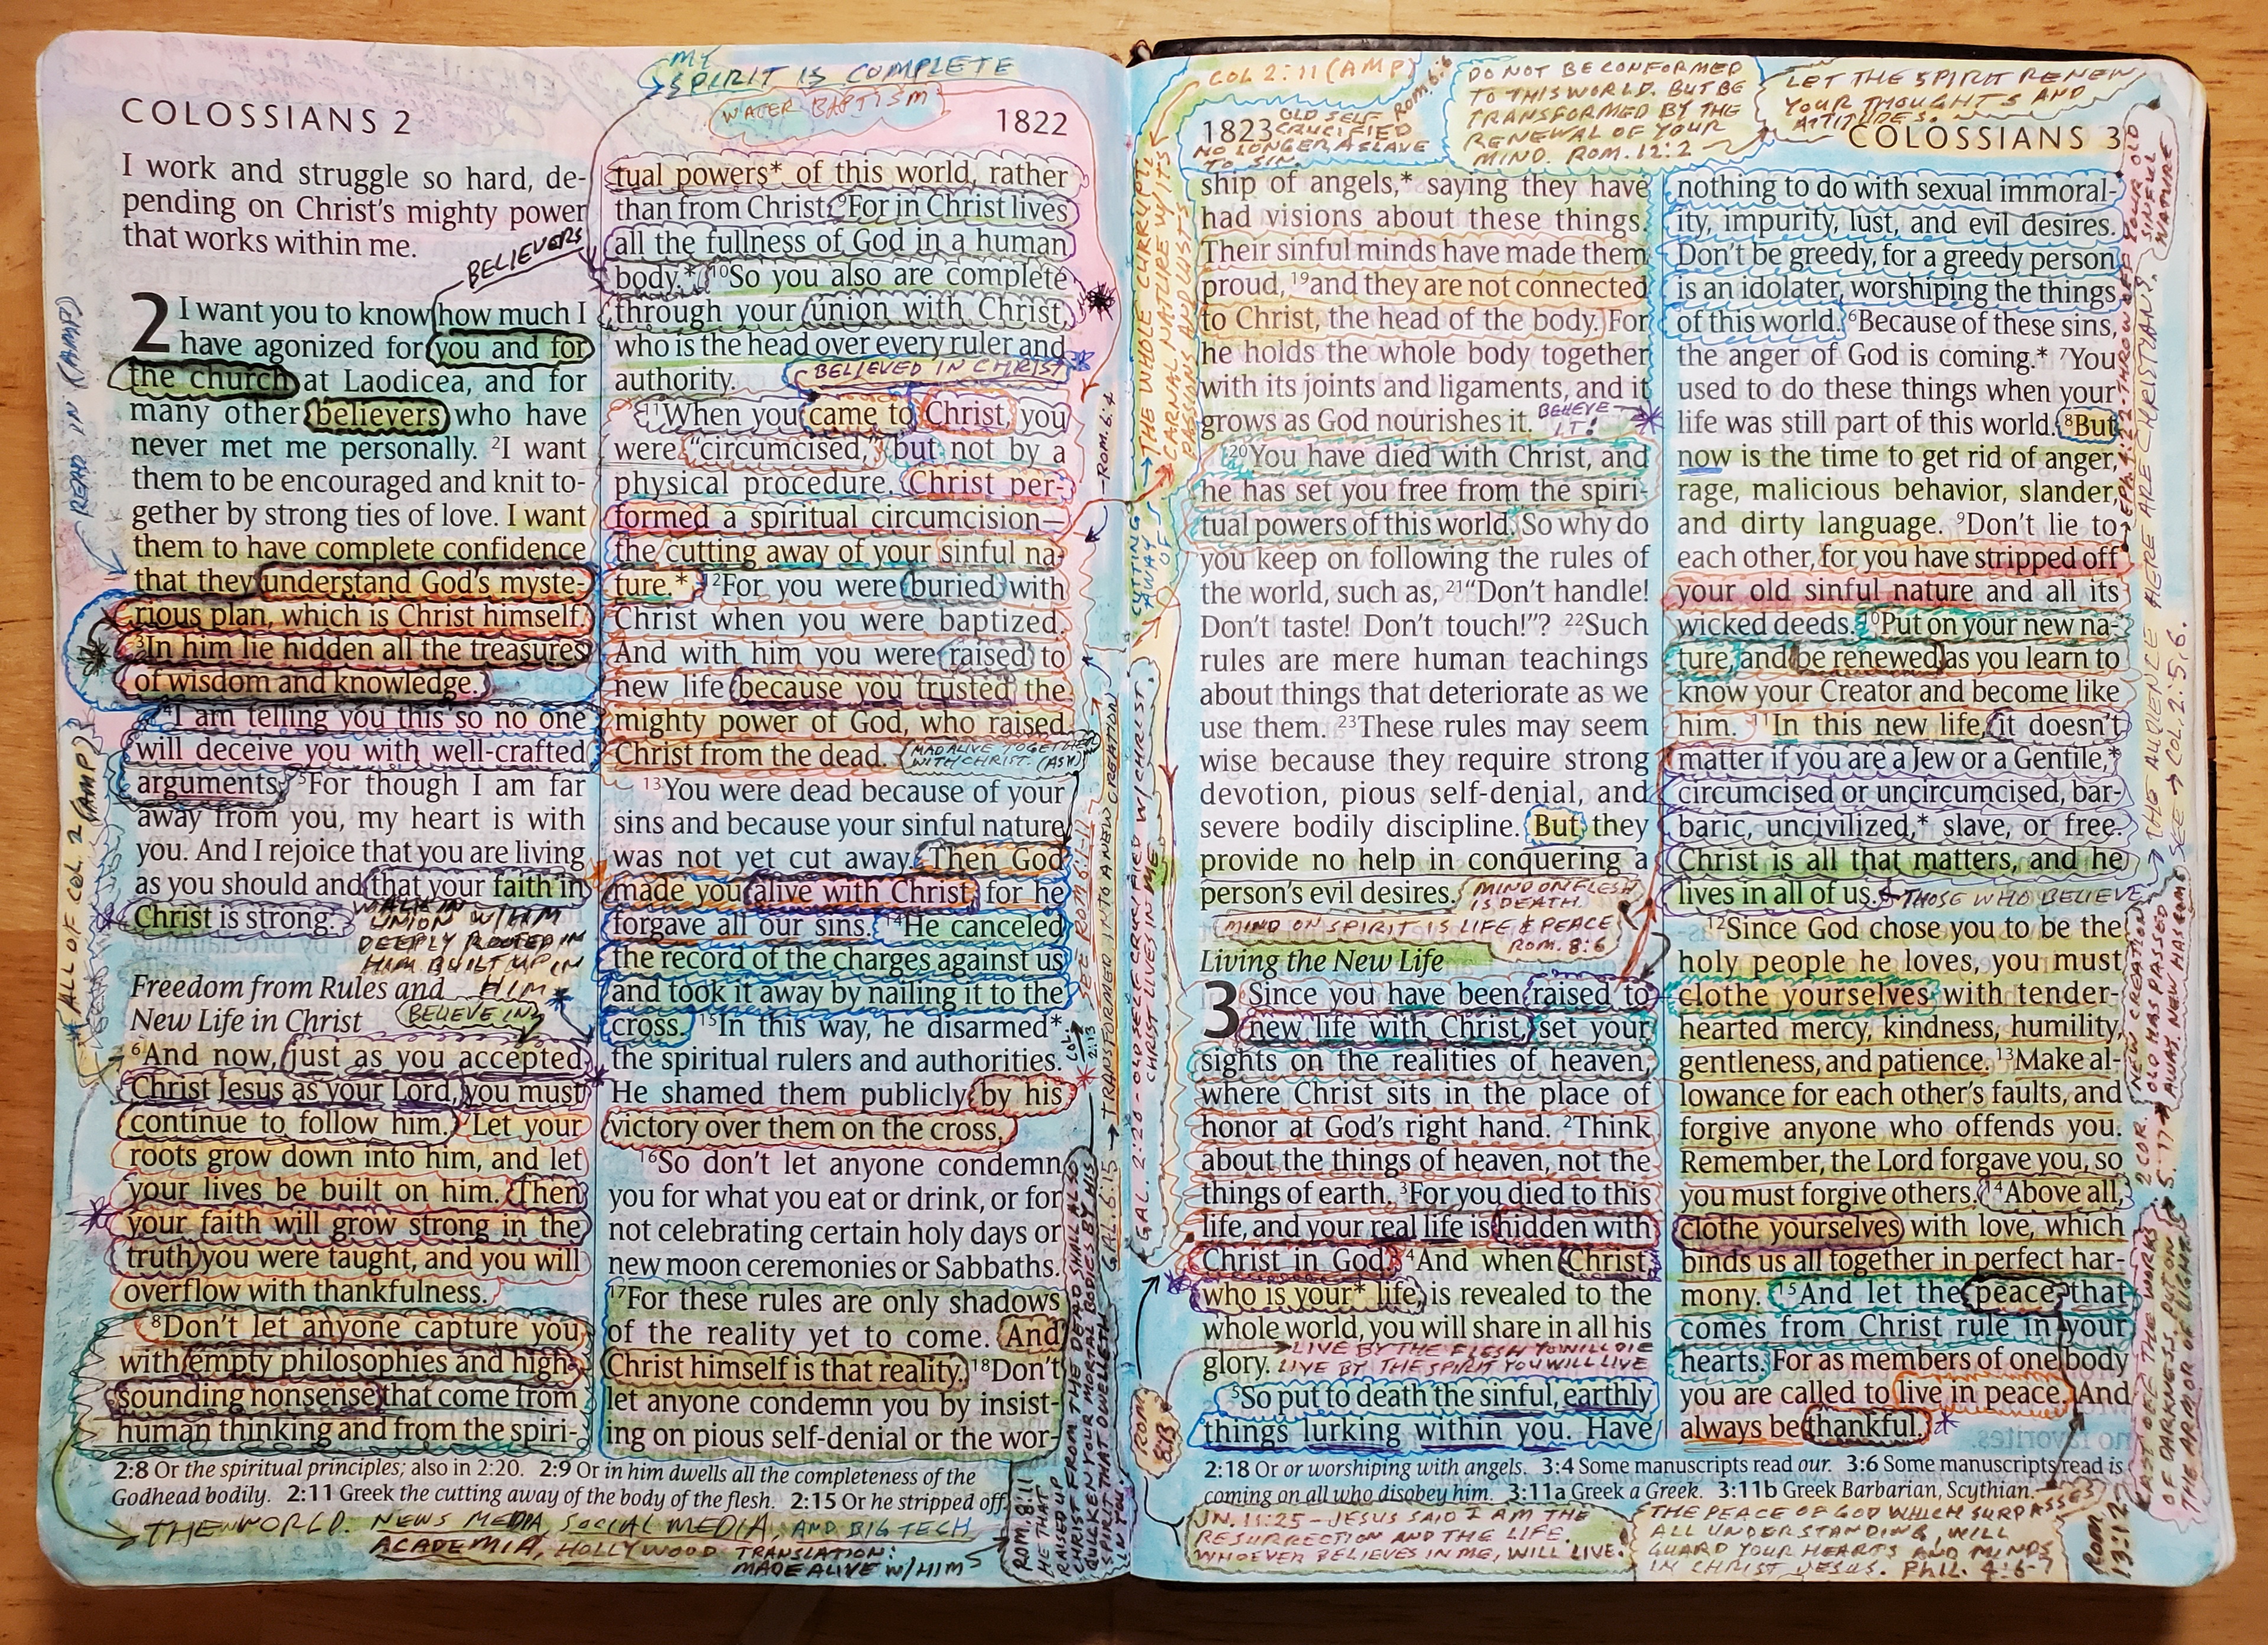 MY
SPIRIT IS COMPLETE
WATER BAPTISM
COLOSSIANS 2
1822
I work and struggle so hard, de-
pending on Christ's mighty power
that works within me.
BELIEVERS
2 I want you to know how much I
have agonized for you and for
the church at Laodicea, and for
many other believers who have
never met me personally. 2I want
them to be encouraged and knit to-
gether by strong ties of love. I want
them to have complete confidence
that they understand God's myste-
rious plan, which is Christ himself.
3In him lie hidden all the treasures
of wisdom and knowledge.
4I am telling you this so no one
will deceive you with well-crafted
arguments. 5For though I am far
away from you, my heart is with
you. And I rejoice that you are living
as you should and that your faith in
Christ is strong.
WALK IN
UNION W/HIM
DEEPLY ROOTED IN
HIM BUILT UP IN
HIM
Freedom from Rules and
New Life in Christ
BELIEVE IN
6And now, just as you accepted
Christ Jesus as your Lord, you must
continue to follow him. 7Let your
roots grow down into him, and let
your lives be built on him. Then
your faith will grow strong in the
truth you were taught, and you will
overflow with thankfulness.
8Don't let anyone capture you
with empty philosophies and high-
sounding nonsense that come from
human thinking and from the spiri-
READ IN (AMP)
ALL OF COL 2 (AMP)
tual powers* of this world, rather
than from Christ. 9For in Christ lives
all the fullness of God in a human
body.* 10So you also are complete
through your union with Christ,
who is the head over every ruler and
authority.
BELIEVED IN CHRIST
11When you came to Christ, you
were "circumcised," but not by a
physical procedure. Christ per-
formed a spiritual circumcision—
the cutting away of your sinful na-
ture.* 12For you were buried with
Christ when you were baptized.
And with him you were raised to
new life because you trusted the
mighty power of God, who raised
Christ from the dead.
MAD ALIVE TOGETHER
WITH CHRIST. (ASV)
13You were dead because of your
sins and because your sinful nature
was not yet cut away. Then God
made you alive with Christ, for he
forgave all our sins. 14He canceled
the record of the charges against us
and took it away by nailing it to the
cross. 15In this way, he disarmed*
the spiritual rulers and authorities.
He shamed them publicly by his
victory over them on the cross.
16So don't let anyone condemn
you for what you eat or drink, or for
not celebrating certain holy days or
new moon ceremonies or Sabbaths.
17For these rules are only shadows
of the reality yet to come. And
Christ himself is that reality. 18Don't
let anyone condemn you by insist-
ing on pious self-denial or the wor-
ROM. 6:4
SEE ROM 6:1-11
COL. 2:13
GAL. 6:15 → TRANSFORMED INTO A NEW CREATION
ROM. 8:11
HE THAT
RAISED UP
CHRIST FROM THE DEAD SHALL ALSO
QUICKEN YOUR MORTAL BODIES BY HIS
SPIRIT THAT DWELLETH
IN YOU
2:8 Or the spiritual principles; also in 2:20. 2:9 Or in him dwells all the completeness of the
Godhead bodily. 2:11 Greek the cutting away of the body of the flesh. 2:15 Or he stripped off.
THE WORLD. NEWS MEDIA, SOCIAL MEDIA, AND BIG TECH
ACADEMIA, HOLLYWOOD TRANSLATION:
MADE ALIVE W/HIM
COL 2:11 (AMP)
Rom. 6:6
OLD SELF
CRUCIFIED
NO LONGER A SLAVE
TO SIN.
DO NOT BE CONFORMED
TO THIS WORLD. BUT BE
TRANSFORMED BY THE
RENEWAL OF YOUR
MIND. ROM. 12:2
LET THE SPIRIT RENEW
YOUR THOUGHTS AND
ATTITUDES.
1823
COLOSSIANS 3
CUTTING
AWAY
OF
THE WHOLE CORRUPT,
CARNAL NATURE W/ITS
PASSIONS AND LUSTS
GAL. 2:20 - OLD SELF CRUCIFIED W/CHRIST.
CHRIST LIVES IN ME
ship of angels,* saying they have
had visions about these things.
Their sinful minds have made them
proud, 19and they are not connected
to Christ, the head of the body. For
he holds the whole body together
with its joints and ligaments, and it
grows as God nourishes it.
BELIEVE
IT!
20You have died with Christ, and
he has set you free from the spiri-
tual powers of this world. So why do
you keep on following the rules of
the world, such as, 21"Don't handle!
Don't taste! Don't touch!"? 22Such
rules are mere human teachings
about things that deteriorate as we
use them. 23These rules may seem
wise because they require strong
devotion, pious self-denial, and
severe bodily discipline. But they
provide no help in conquering a
person's evil desires.
MIND ON FLESH
IS DEATH.
MIND ON SPIRIT IS LIFE & PEACE
ROM. 8:6
Living the New Life
3 Since you have been raised to
new life with Christ, set your
sights on the realities of heaven,
where Christ sits in the place of
honor at God's right hand. 2Think
about the things of heaven, not the
things of earth. 3For you died to this
life, and your real life is hidden with
Christ in God. 4And when Christ,
who is your* life, is revealed to the
whole world, you will share in all his
glory.
LIVE BY THE FLESH YOU WILL DIE
LIVE BY THE SPIRIT YOU WILL LIVE
5So put to death the sinful, earthly
things lurking within you. Have
ROM
8:13
nothing to do with sexual immoral-
ity, impurity, lust, and evil desires.
Don't be greedy, for a greedy person
is an idolater, worshiping the things
of this world. 6Because of these sins,
the anger of God is coming.* 7You
used to do these things when your
life was still part of this world. 8But
now is the time to get rid of anger,
rage, malicious behavior, slander,
and dirty language. 9Don't lie to
each other, for you have stripped off
your old sinful nature and all its
wicked deeds. 10Put on your new na-
ture, and be renewed as you learn to
know your Creator and become like
him. 11In this new life, it doesn't
matter if you are a Jew or a Gentile,*
circumcised or uncircumcised, bar-
baric, uncivilized,* slave, or free.
Christ is all that matters, and he
lives in all of us.
THOSE WHO BELIEVE
12Since God chose you to be the
holy people he loves, you must
clothe yourselves with tender-
hearted mercy, kindness, humility,
gentleness, and patience. 13Make al-
lowance for each other's faults, and
forgive anyone who offends you.
Remember, the Lord forgave you, so
you must forgive others. 14Above all,
clothe yourselves with love, which
binds us all together in perfect har-
mony. 15And let the peace that
comes from Christ rule in your
hearts. For as members of one body
you are called to live in peace. And
always be thankful.
Eph. 4:22-THROW OFF YOUR OLD
SINFUL
NATURE
THE AUDIENCE HERE ARE CHRISTIANS.
SEE → COL. 2:5,6.
2 COR. 5:17
NEW CREATION
OLD HAS PASSED
AWAY. NEW HAS COME
CAST OFF THE WORKS
OF DARKNESS. PUT ON
THE ARMOR OF LIGHT
ROM
13:12
2:18 Or or worshiping with angels. 3:4 Some manuscripts read our. 3:6 Some manuscripts read is
coming on all who disobey him. 3:11a Greek a Greek. 3:11b Greek Barbarian, Scythian.
JN. 11:25 - JESUS SAID I AM THE
RESURRECTION AND THE LIFE.
WHOEVER BELIEVES IN ME, WILL LIVE.
THE PEACE OF GOD WHICH SURPASSES
ALL UNDERSTANDING, WILL
GUARD YOUR HEARTS AND MINDS
IN CHRIST JESUS. Phil. 4:6-7